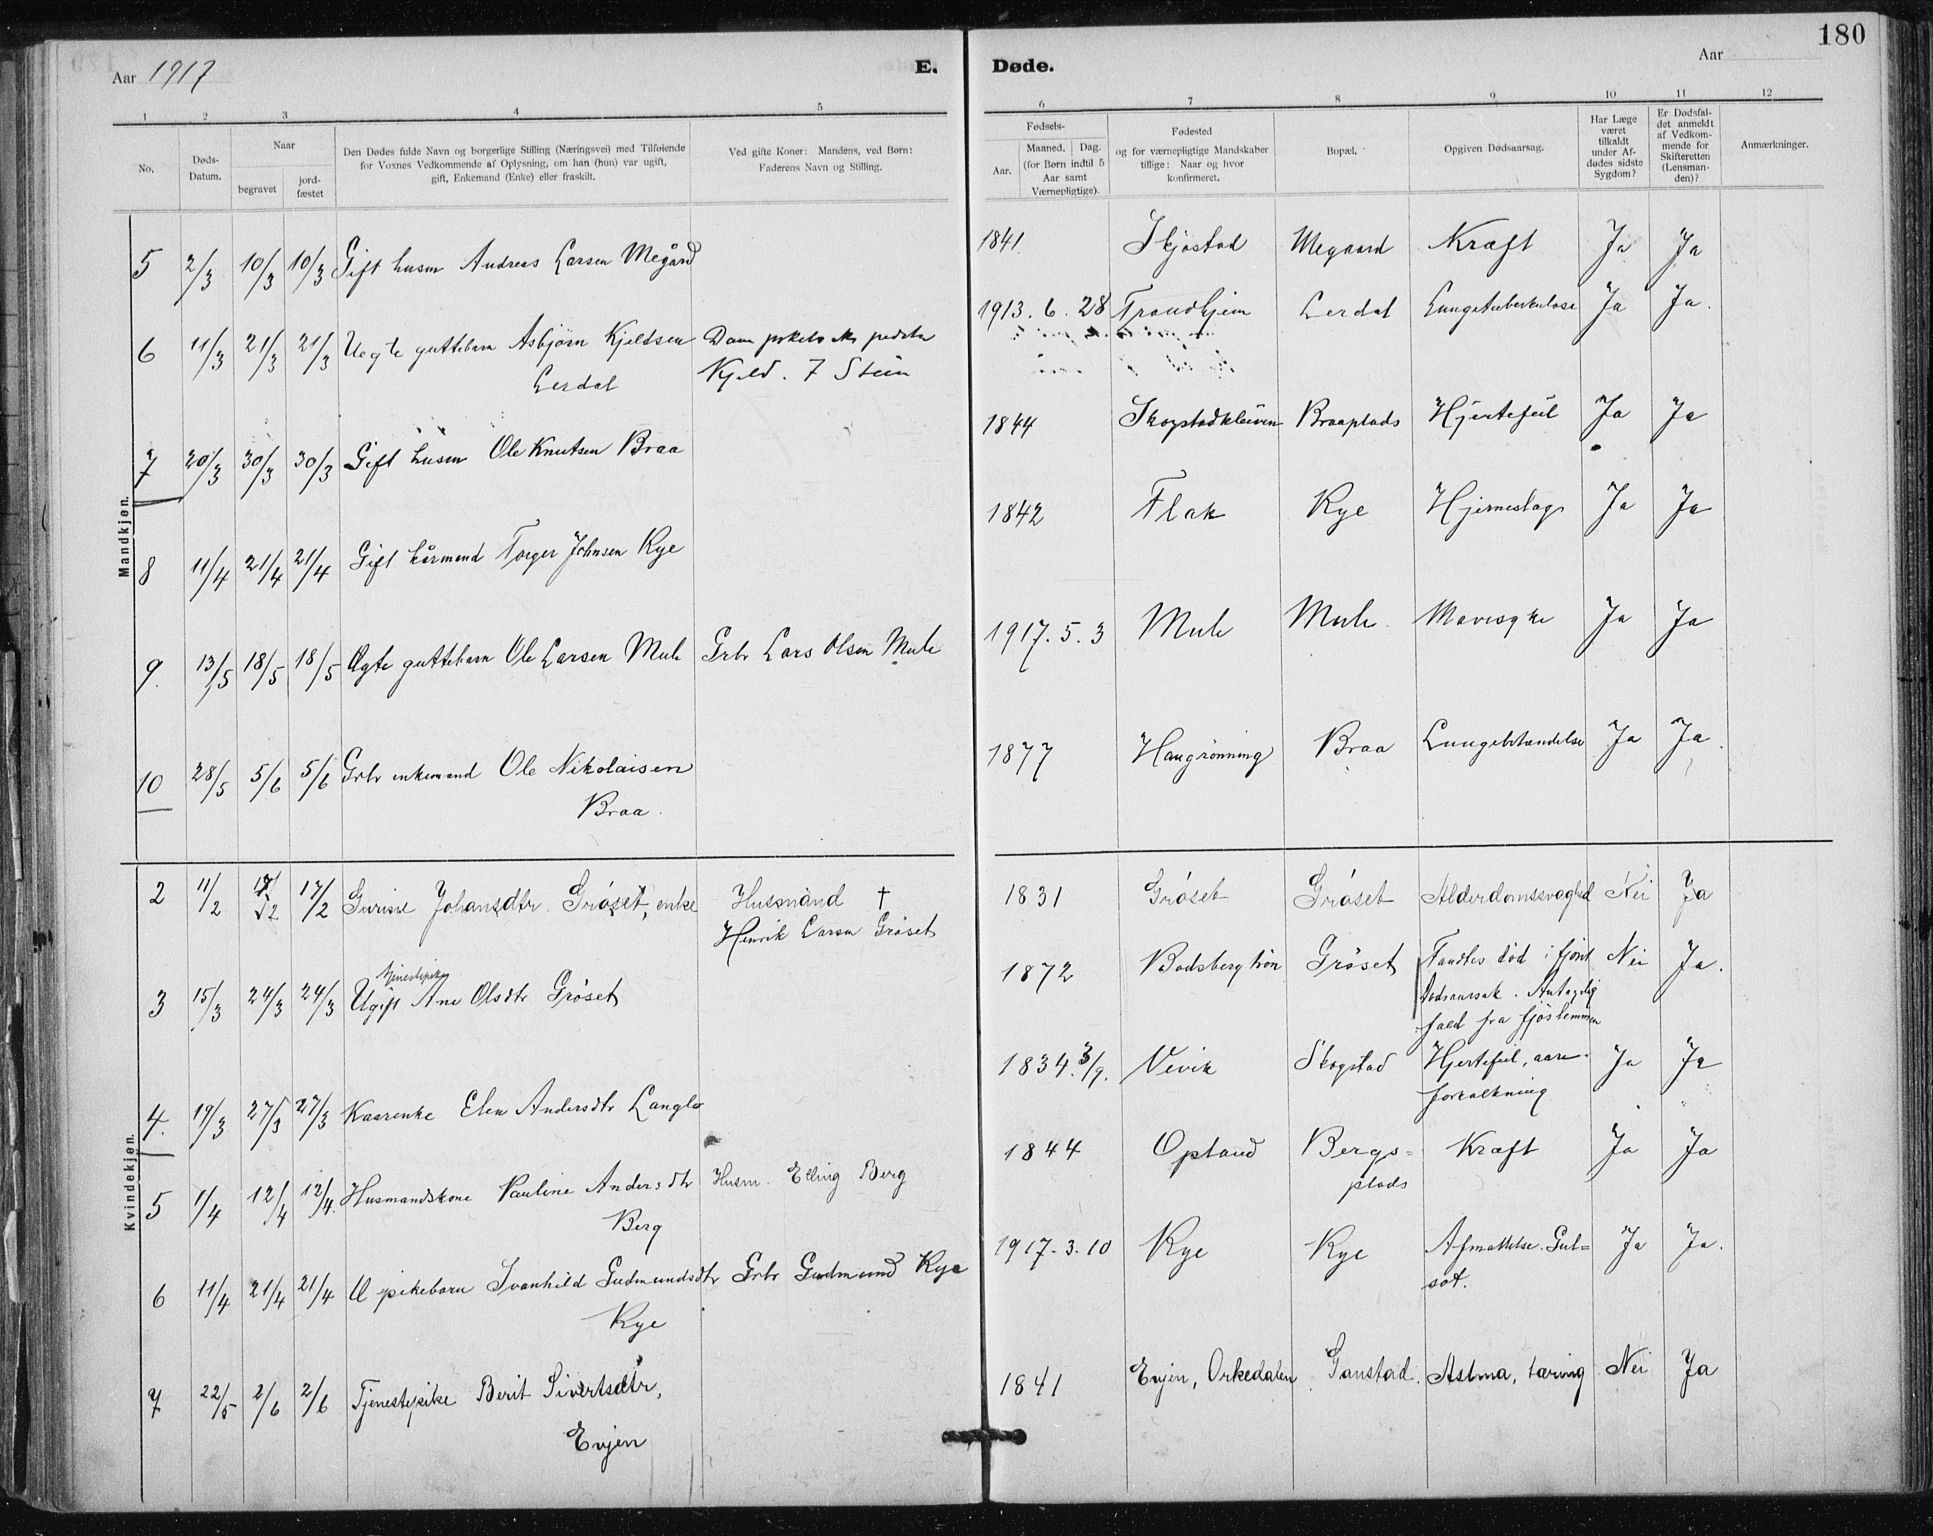 180
Aar 1917 E. Døde. Aar
1 2 3 4 5 6 7 8 9 10 11 12
No.
Døds-Datum.
Naar
begravet
jord-fæstet
Den Dødes fulde Navn og borgerlige Stilling (Næringsvei) med Tilføiende
for Voxnes Vedkommende af Oplysning, om han (hun) var ugift,
gift, Enkemand (Enke) eller fraskilt.
Ved gifte Koner: Mandens, ved Børn:
Faderens Navn og Stilling.
Fødsels-
Aar.
Maaned. Dag.
(for Børn indtil 5
Aar samt
Værnepligtige).
Fødested
og for værnepligtige Mandskaber
tillige: Naar og hvor
konfirmeret.
Bopæl.
Opgiven Dødsaarsag.
Har Læge
været
tilkaldt
under Af-
dødes sidste
Sygdom?
Er Dødsfal-
det anmeldt
af Vedkom-
mende for
Skifteretten
(Lensman-
den)?
Anmærkninger.
Mandkjøn.
5 2/3 10/3 10/3 Gift husm Andreas Larsen Megård 1841 Skjøstad Megaard Kræft Ja Ja
6 11/3 21/3 21/3 Uegte guttebarn Asbjørn Kjeldsen 1913. 6. 28 Trondhjem Lerdal Lungetuberkulose Ja Ja.
Lerdal Kjeld. Stein
7 20/3 30/3 30/3 Gift husm Ole Knutsen Braa 1844 Skogstadkleiven Braaplads Hjertefeil Ja Ja
8 11/4 21/4 21/4 Gift kårmand Torger Johnsen Rye 1842 Flak Rye Hjerneslag Ja Ja
9. 13/5 18/5 18/5 Ægte guttebarn Ole Larsen Mule Grbr Lars Olsen Mule 1917. 5. 3 Mule Mule. Mavesyke Ja Ja
10 28/5 5/6 5/6 Grbr enkemand Ole Nikolaisen 1877 Haugrønning Braa Lungebetændelse Ja Ja.
Braa.
Kvindekjøn.
2 11/2 17/2 17/2 Gurine Johansdtr. Grøset, enke Husmand † 1831 Grøset Grøset Alderdomssvaghed Nei Ja
Henrik Larsen Grøset
3 15/3 24/3 24/3 Ugift tjenestepike Ane Olsdtr Grøset 1872 Grøset Fandtes død i fjøset Nei Ja.
Dødsaarsak. Antagelig
fald fra fjøslemmen
4. 19/3 27/3 27/3 Kaarenke Elen Andersdtr Langlo 1834. 3/9. Vevik Skogstad Hjertefeil, aare- Ja Ja
forkalkning
5 1/4 12/4 12/4. Husmandskone Pauline Andersdtr Husm. Elling Berg 1844 Opland Bergs= Kræft Ja Ja
Berg plads
6 11/4 21/4 21/4 Æ pikebarn Svanhild Gudmundsdtr Grbr Gudmund Rye 1917. 3. 10 Rye Rye Afmattelse. Gul= Ja Ja.
Rye sot.
7 22/5 2/6 2/6 Tjenestepike Berit Sivertsdtr, 1841 Evjen, Orkedalen Ganstad. Astma, tæring Nei Ja
Evjen